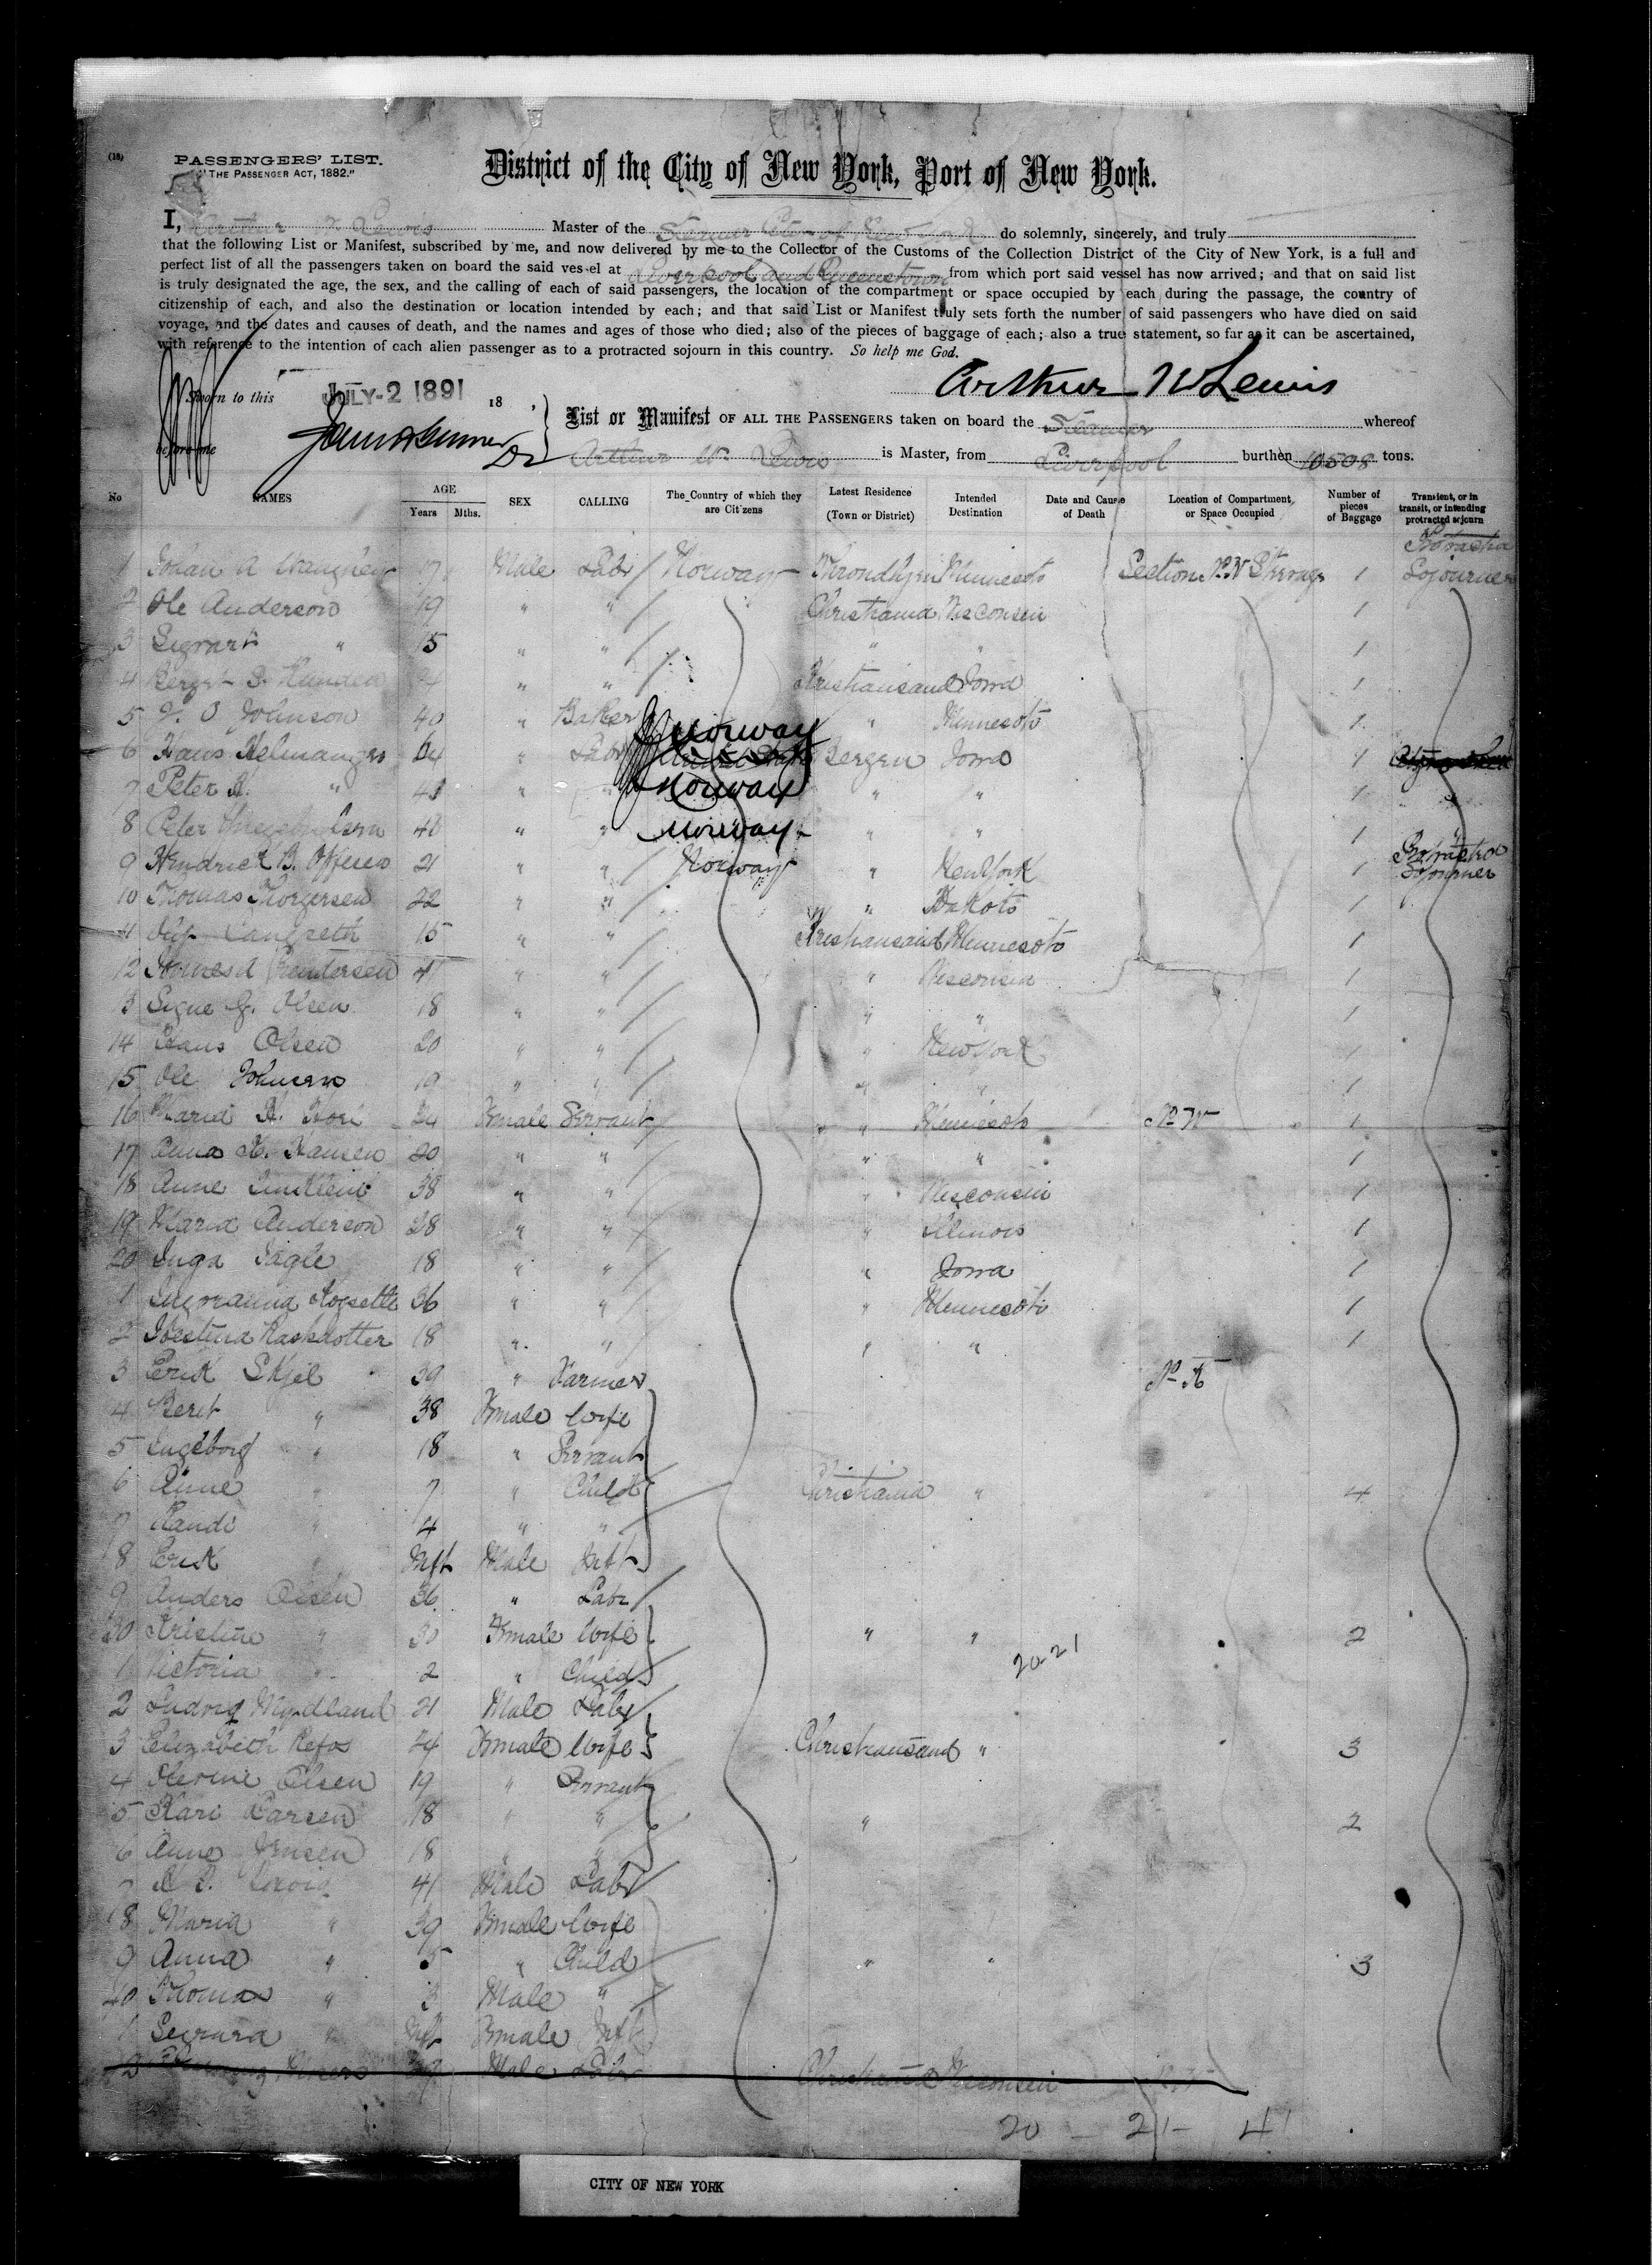 (18)
PASSENGERS' LIST.
"THE PASSENGER ACT, 1882."
District of the City of New York, Port of New York.
I, Arthur W Lewis Master of the Steamer City of New York do solemnly, sincerely, and truly
that the following List or Manifest, subscribed by me, and now delivered by me to the Collector of the Customs of the Collection District of the City of New York, is a full and
perfect list of all the passengers taken on board the said vessel at Liverpool and Queenstown from which port said vessel has now arrived; and that on said list
is truly designated the age, the sex, and the calling of each of said passengers, the location of the compartment or space occupied by each during the passage, the country of
citizenship of each, and also the destination or location intended by each; and that said List or Manifest truly sets forth the number of said passengers who have died on said
voyage, and the dates and causes of death, and the names and ages of those who died; also of the pieces of baggage of each; also a true statement, so far as it can be ascertained,
with reference to the intention of each alien passenger as to a protracted sojourn in this country. So help me God.
Arthur W Lewis
Sworn to this JULY-2 1891 18
before me
List or Manifest OF ALL THE PASSENGERS taken on board the Steamer whereof
Arthur W. Lewis is Master, from Liverpool burthen 10508 tons.
No NAMES AGE Years Mths. SEX CALLING The Country of which they are Citizens Latest Residence (Town or District) Intended Destination Date and Cause of Death Location of Compartment or Space Occupied Number of pieces of Baggage Transient, or in transit, or intending protracted sojourn
1 Johan A 17 Male Labr Norway Throndhjem Minnesota Section 1 Sojourner
2 Ole Anderson 19 " " Christiania Wisconsin 1
3 " 15 " " " " 1
4 " " Christiansand Iowa 1
5 O Johnson 40 " Baker " Minnesota 1
6 Hans 64 " Labr Norway Bergen Iowa 1
7 Peter " " " Norway " " 1 "
8 Peter 48 " " Norway " " 1 "
9 Hendrick B. 21 " " Norway " New York 1 Protracted Sojourner
10 Thomas Thorgersen 22 " " " Dakota 1
11 15 " " Christiansand Minnesota 1
12 " " " Wisconsin 1
3 Signe G. Olsen 18 " " " " 1
14 Hans Olsen 20 " " " New York 1
15 Ole Johnsen 19 " " " " 1
16 24 Female Servant " " Minnesota 1
17 Anna K. Hansen 20 " " " " 1
18 Anne 38 " " " Wisconsin 1
19 Maria Anderson 28 " " " Illinois 1
20 Inga 18 " " " Iowa 1
1 36 " " " Minnesota 1
2 18 " " " " 1
3 Erik Skjel 39 " Farmer
4 Berit " 38 Female Wife
5 Ingeborg " 18 " Servant
6 Anne " 7 " Child Christiania " 4
7 Randi " 4 " "
8 Erik " Inft Male Inft
9 Anders Olsen 36 " Labr
30 Kristine " 30 Female Wife " " 2
20-21
1 Victoria " 2 " Child
2 Ludvig Mydland 21 Male Labr
3 Elizabeth Refos 24 Female Wife Christiansand " 3
4 Olsen 19 " Servant
5 Kari Larsen 18 " " " 2
6 Anne Jensen 18 " "
7 41 Male Labr
8 Maria " 39 Female Wife
9 Anna " 5 " Child " " 3
40 Thomas " 3 Male "
1 " Inft Female Inft
2 Male Labr Christiania Wisconsin
20 - 21 - 41
CITY OF NEW YORK